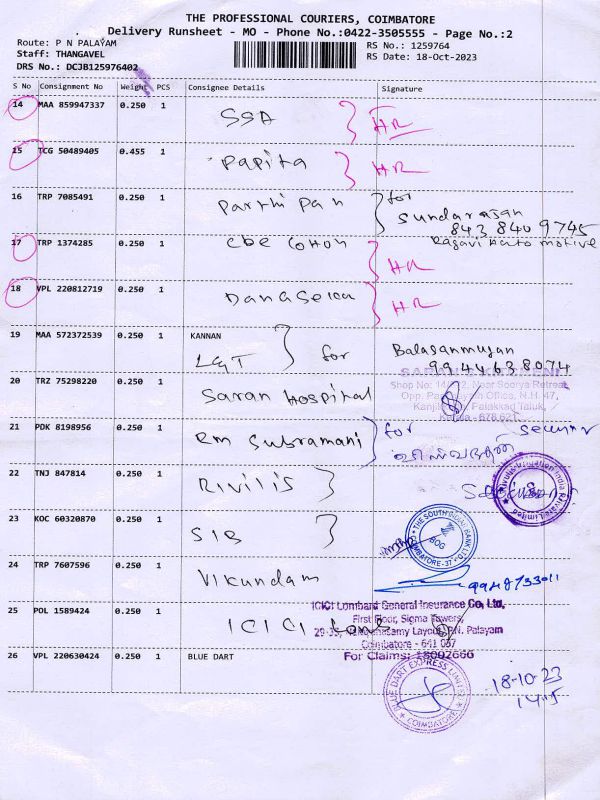 THE PROFESSIONAL COURIERS, COIMBATORE
Delivery Runsheet - MO - Phone No.:0422-3505555 - Page No.:2
Route: P N PALAYAM
Staff: THANGAVEL
DRS No.: DCJB125976402
RS No.: 1259764
RS Date: 18-Oct-2023
S No Consignment No Weight PCS Consignee Details Signature
14 MAA 859947337 0.250 1 SSA HR
15 TCG 50489405 0.455 1 Papita HR
16 TRP 7085491 0.250 1 Parthi Pan for
Sundarajan
843 840 9745
17 TRP 1374285 0.250 1 cbe cohon Ragavi Auto motive
HR
18 VPL 220812719 0.250 1 Danaseka HR
19 MAA 572372539 0.250 1 KANNAN
LGT for Balasanmugan
9944638074
20 TRZ 75298220 0.250 1 Saran Hospital
Shop No: Near Soorya Retreat,
Opp. Office, N.H. 47,
Palakkad Taluk,
Kerala - 678 621
21 PDK 8198956 0.250 1 Rm Subramani for
22 TNJ 847814 0.250 1 Rivilis
India Private Limited
23 KOC 60320870 0.250 1 SIB
THE SOUTH INDIAN BANK LTD
BOG
COIMBATORE-37
24 TRP 7607596 0.250 1 Vikundam
25 POL 1589424 0.250 1 ICICI Lomb
ICICI Lombard General Insurance Co, Ltd,
First Floor, Sigma Towers,
Layout, P.N. Palayam
Coimbatore - 641 037
For Claims: 18002666
26 VPL 220630424 0.250 1 BLUE DART
BLUE DART EXPRESS LIMITED
COIMBATORE
18-10-23